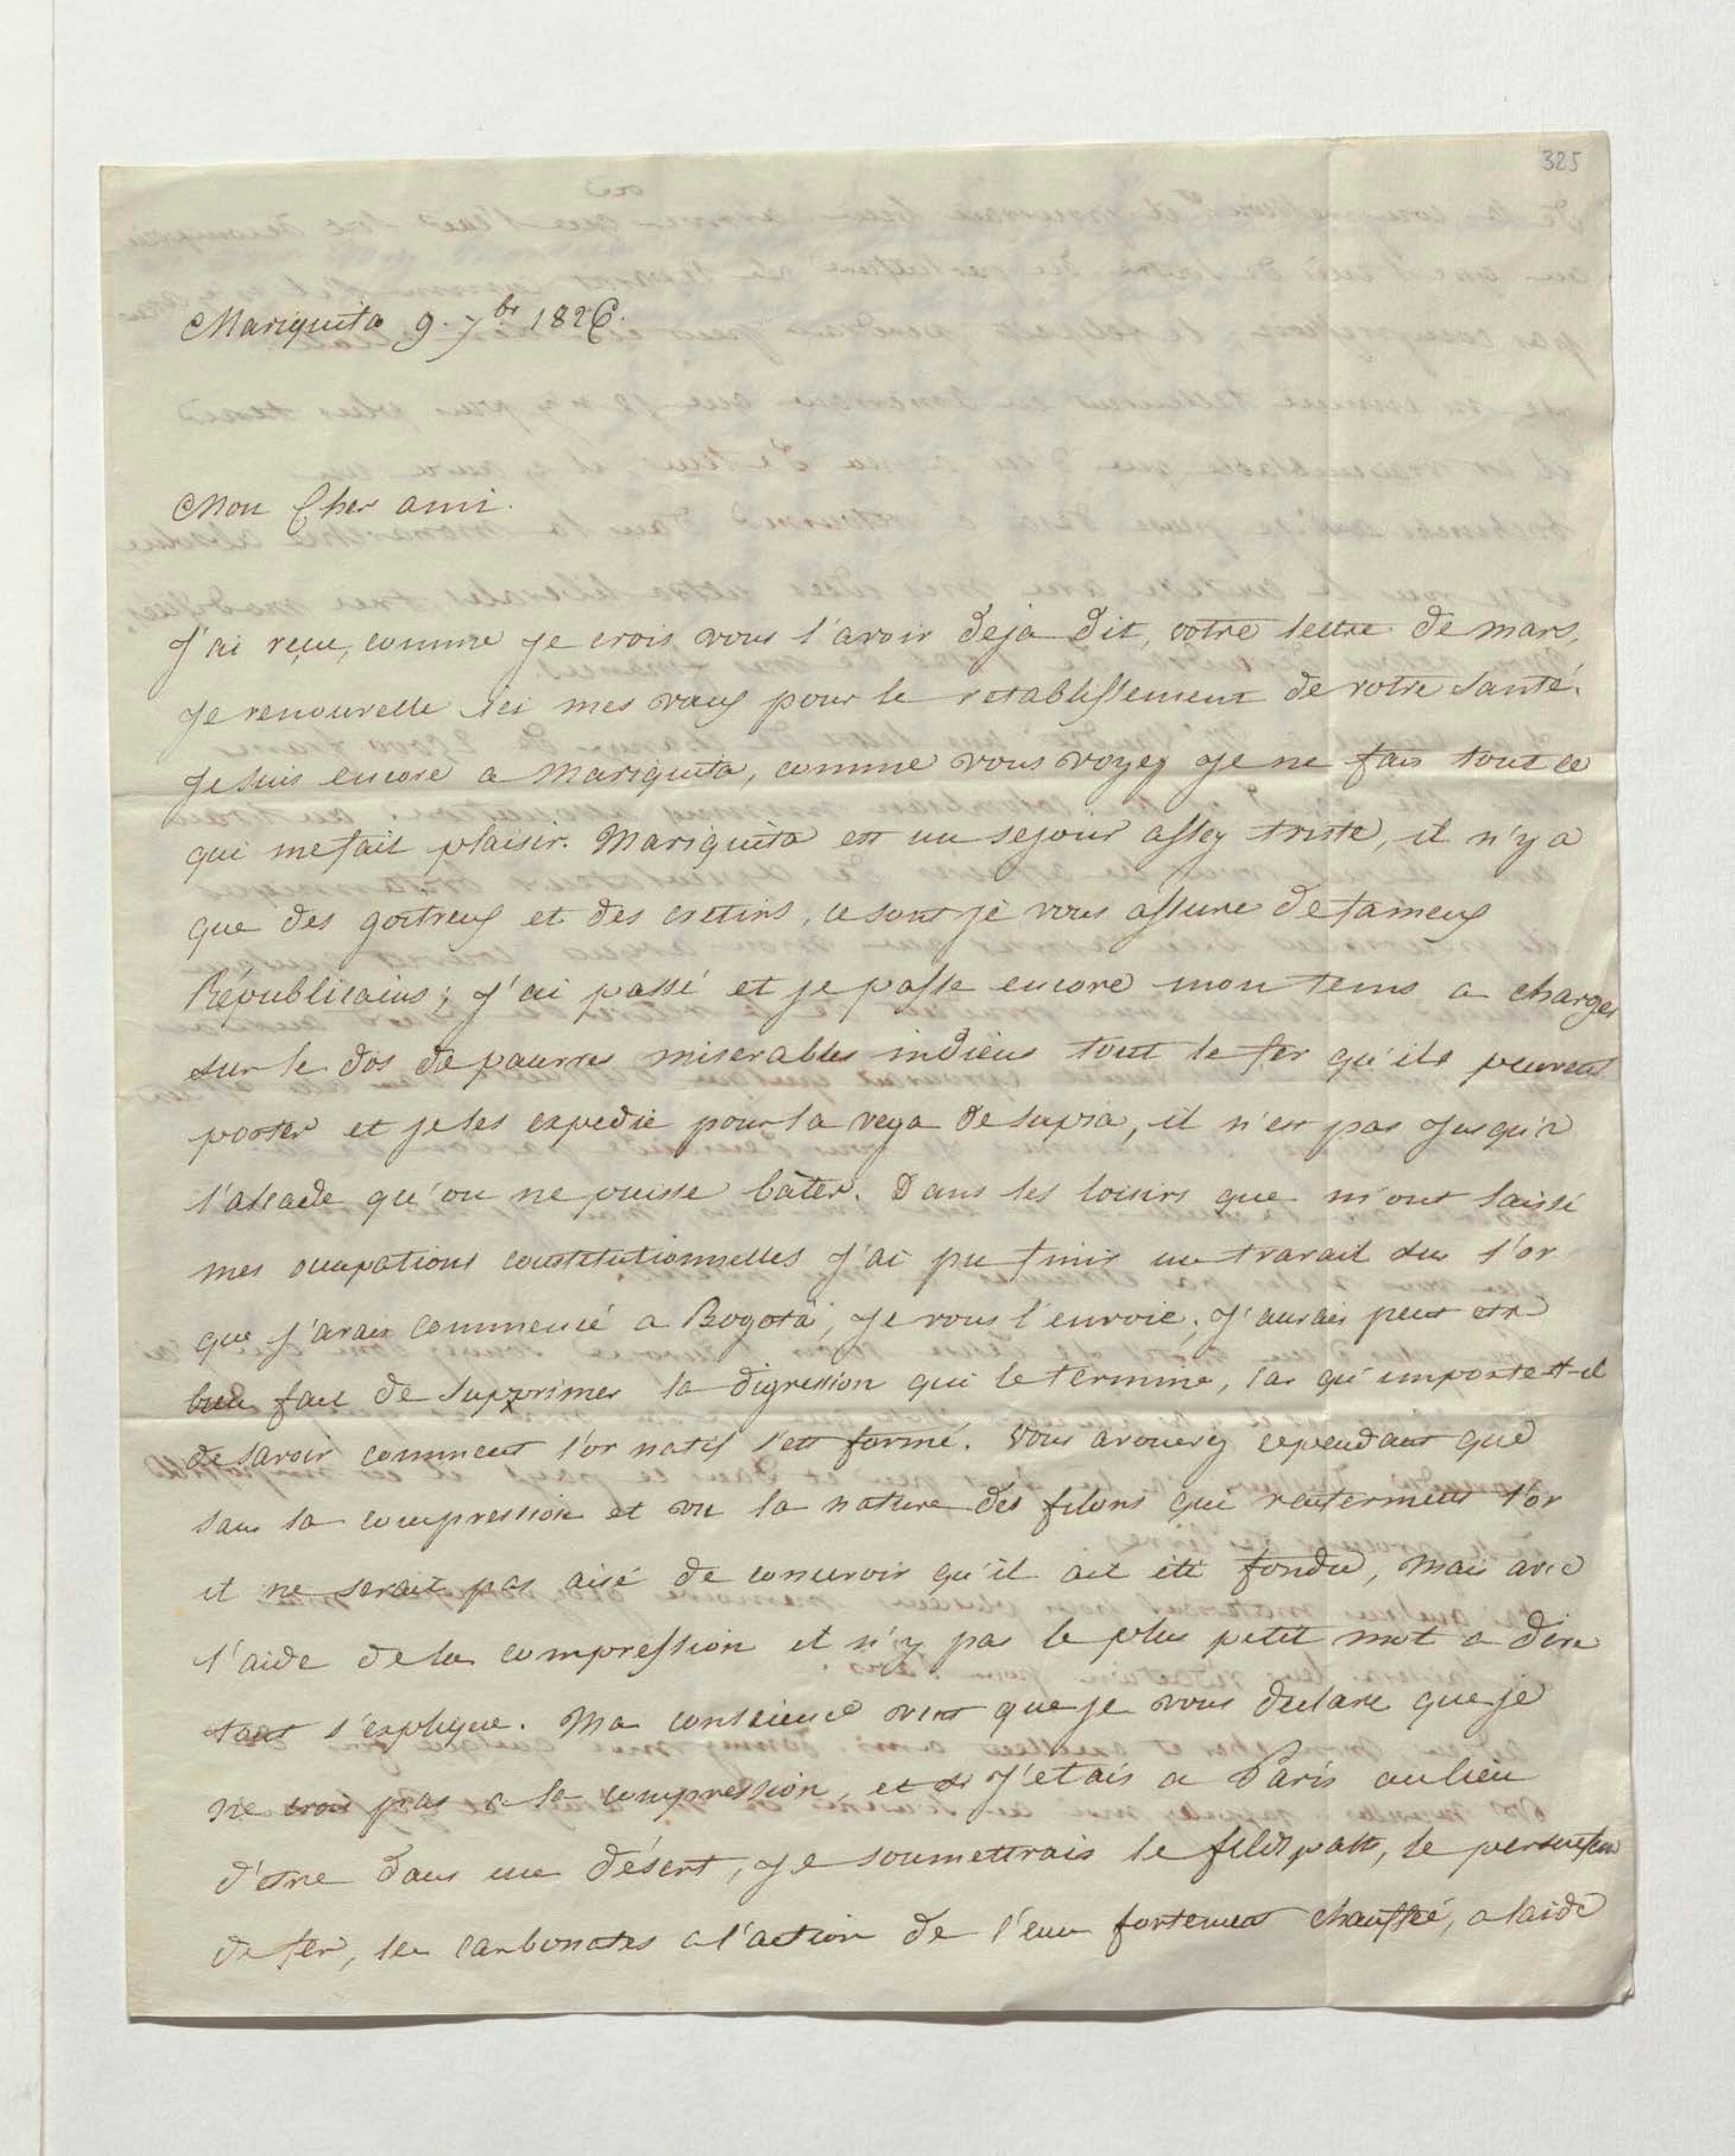 325
Mariquita 9. 7bre 1826.
Mon Cher ami.
J'ai reçue, comme je crois vous l'avoir deja dit, votre lettre de mars,
je renouvelle ici mes vœux pour le retablissement de votre santé.
Je suis encore a Mariquita, comme vous voyez je ne fais tout ce
qui me fait plaisir. Mariquita est un sejour assez triste, il n'y a
que des goitreux et des cretins, ce sont je vous assure de fameux
Républicains; j'ai passé et je passe encore mon tems a charger
sur le dos de pauvres miserables indiens tout le fer qu'ils peuvent
porter et je les expedie pour la vega de supia, il n'est pas jusqu'a
l'alcade qu'on ne puisse bâter. Dans les loisirs que m'ont laissé
mes ocupations constitutionnelles j'ai pu finir un travail sur l'or
que j'avais commencé a Bogotá, je vous l'envoie; j'aurais peut etre
bien fait de supprimer la digression qui le termine, car qu'importe t-il
de savoir comment l'or natif s'est formé. Vous avouerez cependant que
sans la compression et vu la nature des filons qui renferment l'or
il ne serait pas aisé de concevoir qu'il ait été fondu, mais avec
l'aide de la compression il n'y pas le plus petit mot a dire
tout s'explique. Ma conscience veut que je vous declare que je
ne crois pas a la compression, et si j'etais a Paris au lieu
d'être dans un désert, je soumettrais le feldspath, le persulfure
de fer, les carbonates a l'action de l'eau fortement chauffée, a laide